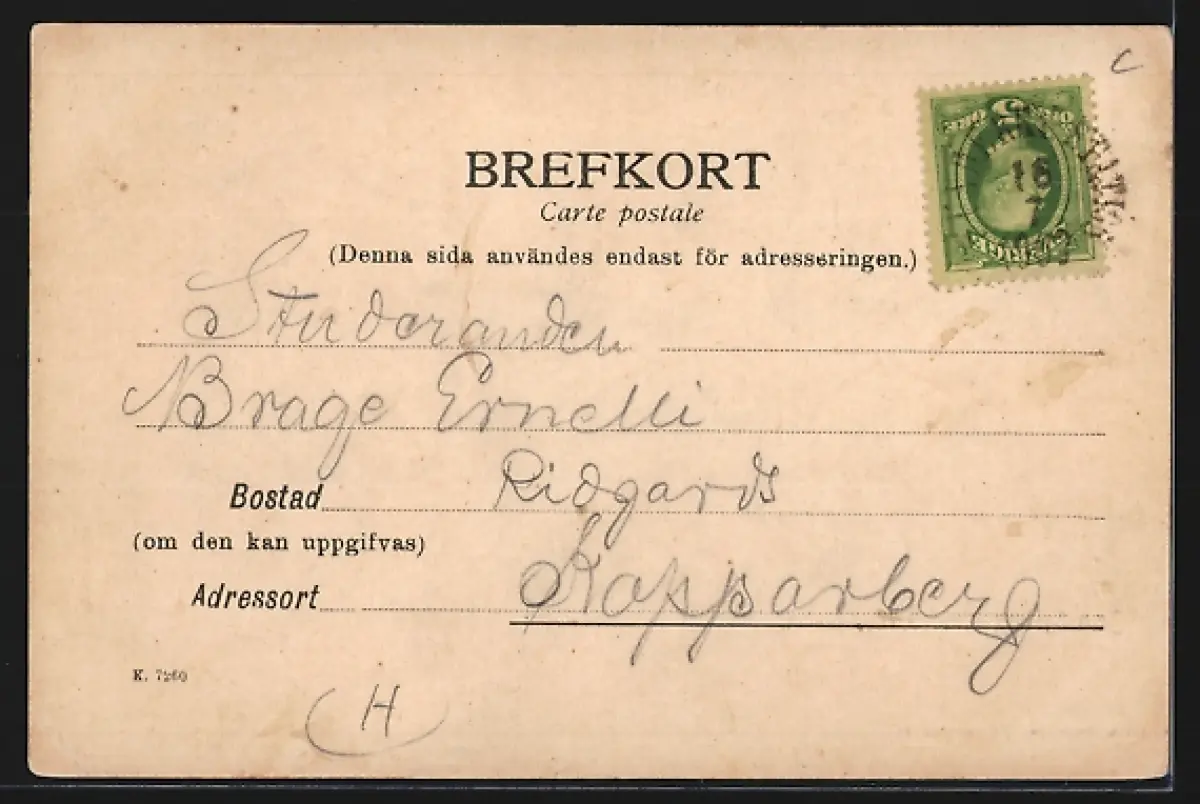 BREFKORT
Carte postale
(Denna sida användes endast för adresseringen.)
Studeranden
Brage Ernelli
Bostad Ridgards
(om den kan uppgifvas)
Adressort Kopparberg
K. 7260
H